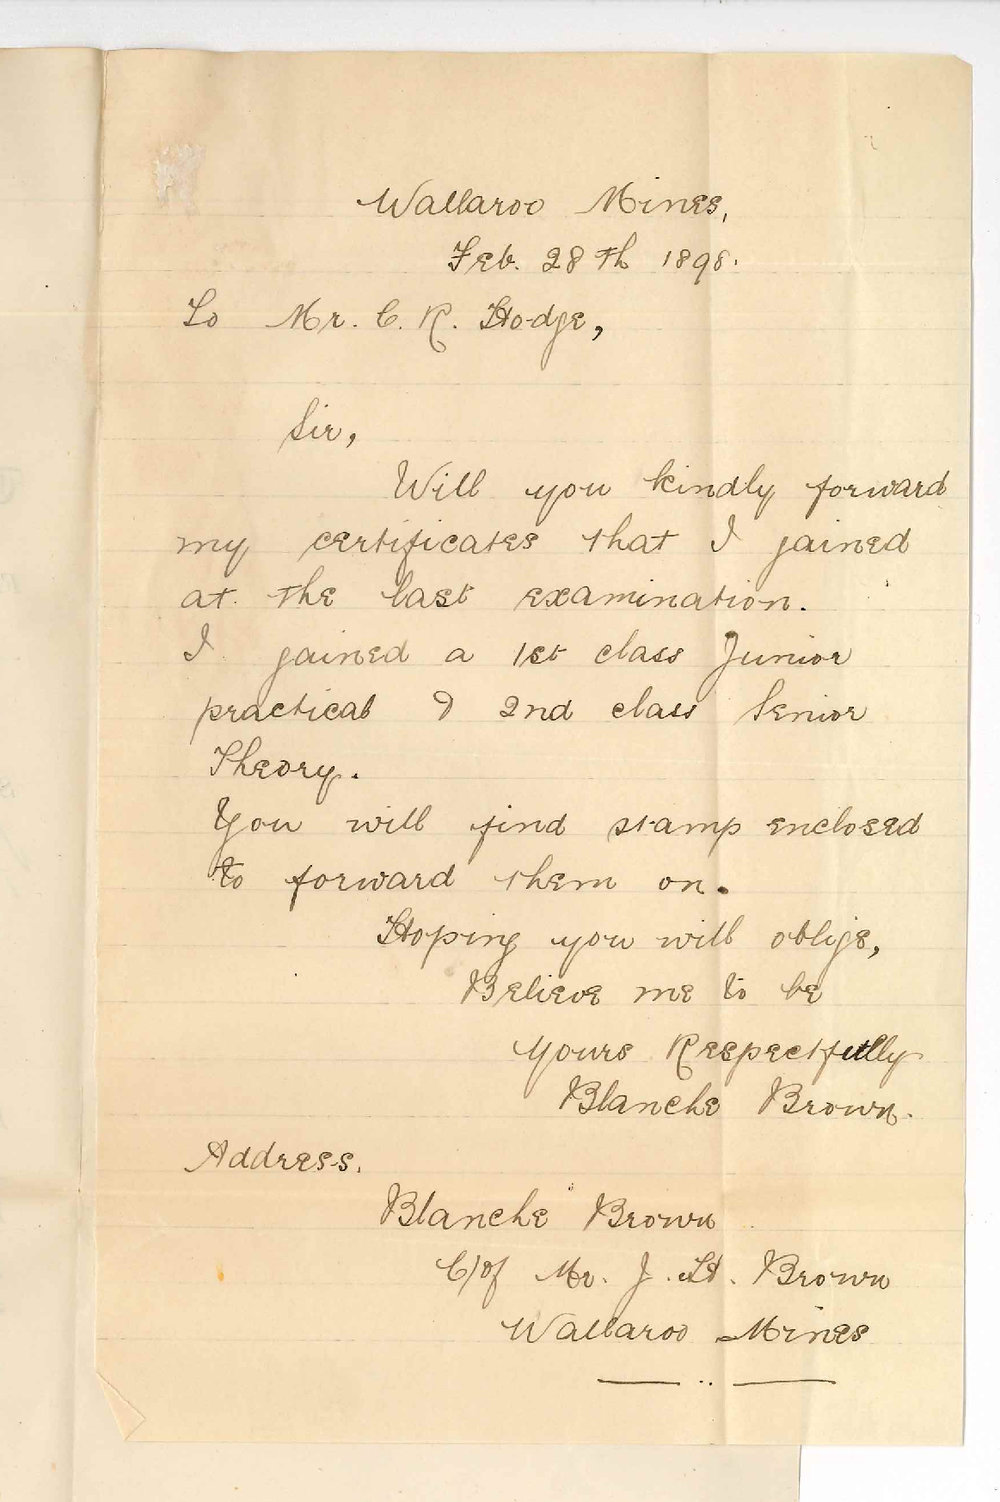 Wallaroo Mines,
Feb. 28th 1898.
To Mr. C. R. Hodge,
Sir,
Will you kindly forward
my certificates that I gained
at the last examination.
I gained a 1st class Junior
practical & 2nd class Senior
Theory.
You will find stamp enclosed
to forward them on.
Hoping you will oblige,
Believe me to be
Yours Respectfully
Blanche Brown.
Address.
Blanche Brown
C/of Mr. J. H. Brown
Wallaroo Mines